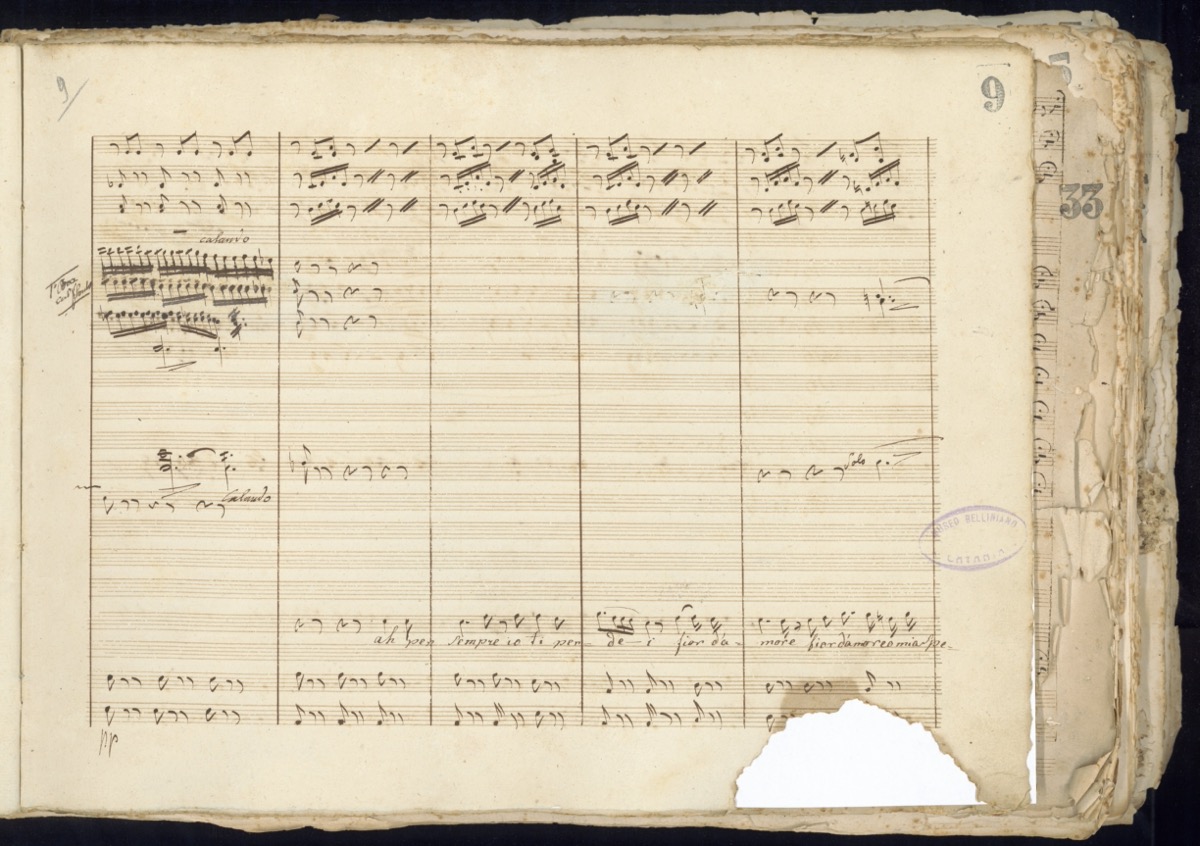 9
9
5
33
calando
Solo
Calando
MUSEO BELLINIANO
CATANIA
ah per sempre io ti per- de- i fior da- more fior damore o mia spe-
pp